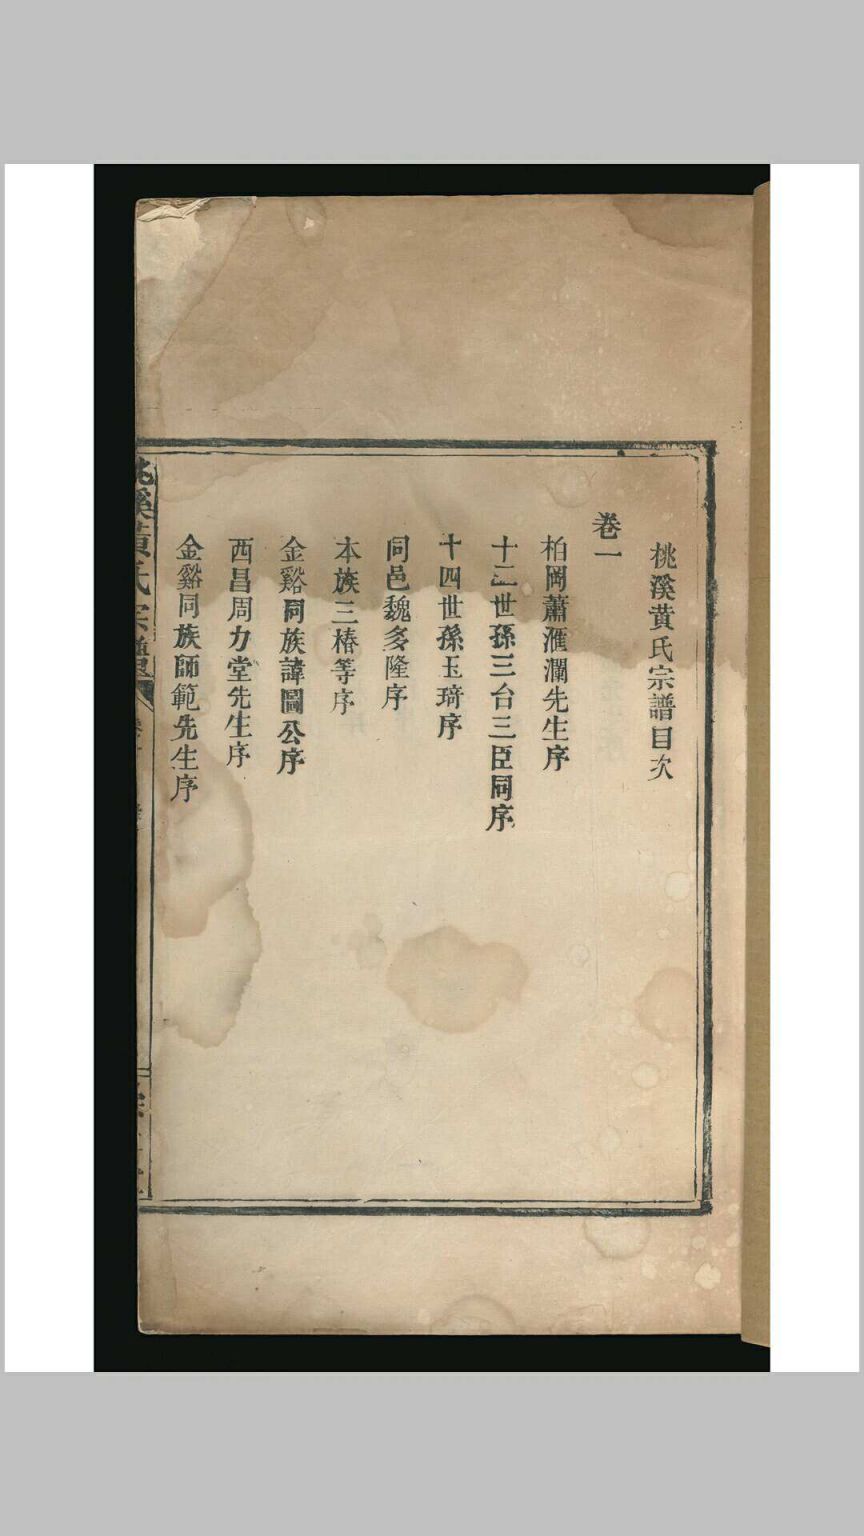 桃溪黄氏宗譜目次
卷一
柏岡蕭滙瀾先生序
十二世孫三台三臣同序
十四世孫玉琦序
同邑魏多隆序
本族三椿等序
金谿同族諱圖公序
西昌周力堂先生序
金谿同族師範先生序
桃溪黄氏宗譜